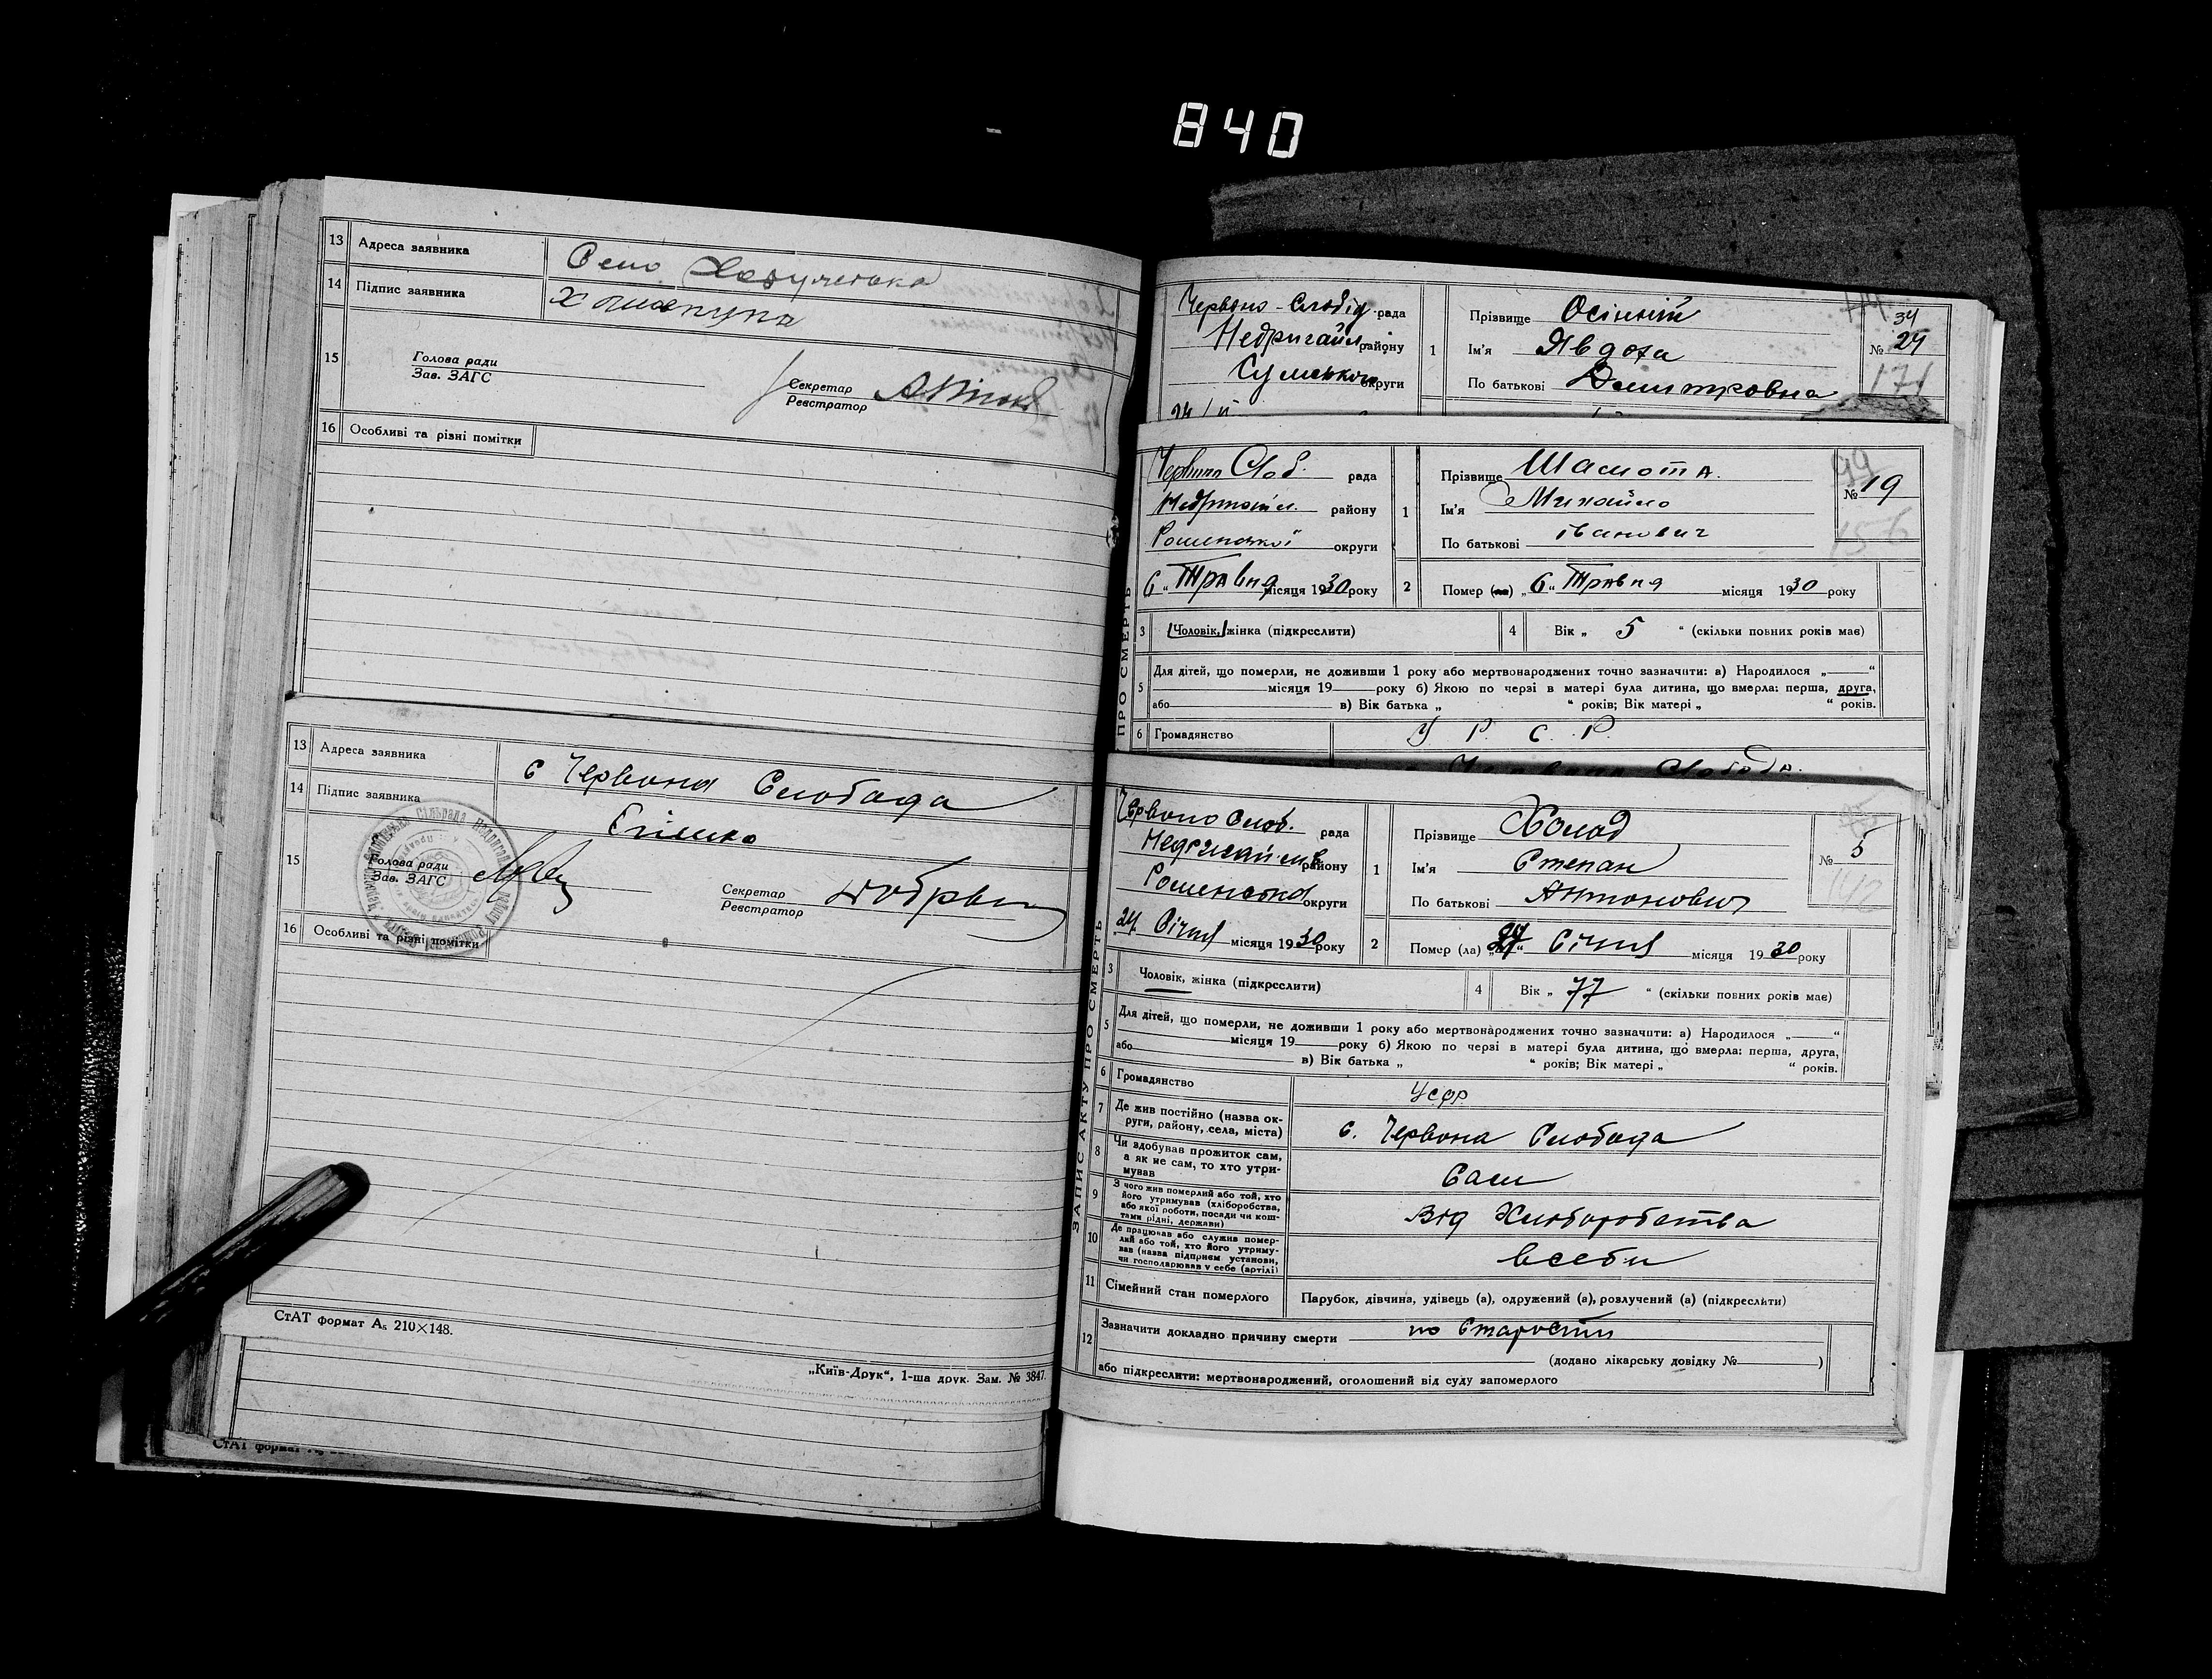 840
13 Адреса заявника Село
14 Підпис заявника
15 Голова ради
Зав. ЗАГС
Секретар
Реєстратор
16 Особливі та різні помітки
13 Адреса заявника с Червона Слобода
14 Підпис заявника
15 Голова ради
Зав. ЗАГС
Секретар
Реєстратор
16 Особливі та різні помітки
СтАТ формат А₅ 210×148.
„Київ-Друк“, 1-ша друк. Зам. № 3847.
СтАТ формат
Червоно-Слобід. рада
Недригайл. району
Сумського округи
1 Прізвище Осінній
Ім'я Явдоха
По батькові Дмитровна
34
№ 24
171
Червоно Слоб. рада
району
Роменської округи
6 „ Травня місяця 1930 року
1 Прізвище Шамота.
Ім'я Михайло
По батькові іванович
№ 19
156
2 Помер (ла) „6“ Травня місяця 1930 року
3 Чоловік, жінка (підкреслити)
4 Вік „ 5 “ (скільки повних років має)
5 Для дітей, що померли, не доживши 1 року або мертвонароджених точно зазначити: а) Народилося „ “
місяця 19 року б) Якою по черзі в матері була дитина, що вмерла: перша, друга,
або в) Вік батька „ “ років; Вік матері „ “ років.
6 Громадянство У. Р. С. Р.
ПРО СМЕРТЬ
Червона Слобода.
Червоно Слоб. рада
району
Роменська округи
24 Січня місяця 1930 року
1 Прізвище Холод
Ім'я Степан
По батькові Антонович
№ 5
142
2 Помер (ла) „24“ Січня місяця 1930 року
3 Чоловік, жінка (підкреслити)
4 Вік „ 77 “ (скільки повних років має)
5 Для дітей, що померли, не доживши 1 року або мертвонароджених точно зазначити: а) Народилося „ “
місяця 19 року б) Якою по черзі в матері була дитина, що вмерла: перша, друга,
або в) Вік батька „ “ років; Вік матері „ “ років.
6 Громадянство Усфр.
7 Де жив постійно (назва ок-
руги, району, села, міста) с. Червона Слобода
8 Чи здобував прожиток сам,
а як не сам, то хто утри-
мував Сам
9 З чого жив померлий або той, хто
його утримував (хліборобства,
або якої роботи, посади чи кош-
тами рідні, держави) Від Хлоборобства
10 Де працював або служив помер-
лий або той, хто його утриму-
вав (назва підприєм установи,
чи господарював у себе (артілі) всеби
11 Сімейний стан померлого Парубок, дівчина, удівець (а), одружений (а), розлучений (а) (підкреслити)
12 Зазначити докладно причину смерти по Старости
(додано лікарську довідку № )
або підкреслити: мертвонароджений, оголошений від суду запомерлого
ЗАПИС АКТУ ПРО СМЕРТЬ